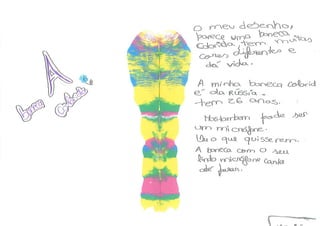 A
Boneca
Colorida
O meu desenho,
parece uma boneca
colorida tem muitas
cores diferentes e
dá vida.
A minha boneca colorid
é da Rússia.
tem 26 anos.
tambem pode ser
um microfone.
é o que quisserem.
A boneca com o seu
lindo microfone canta
até